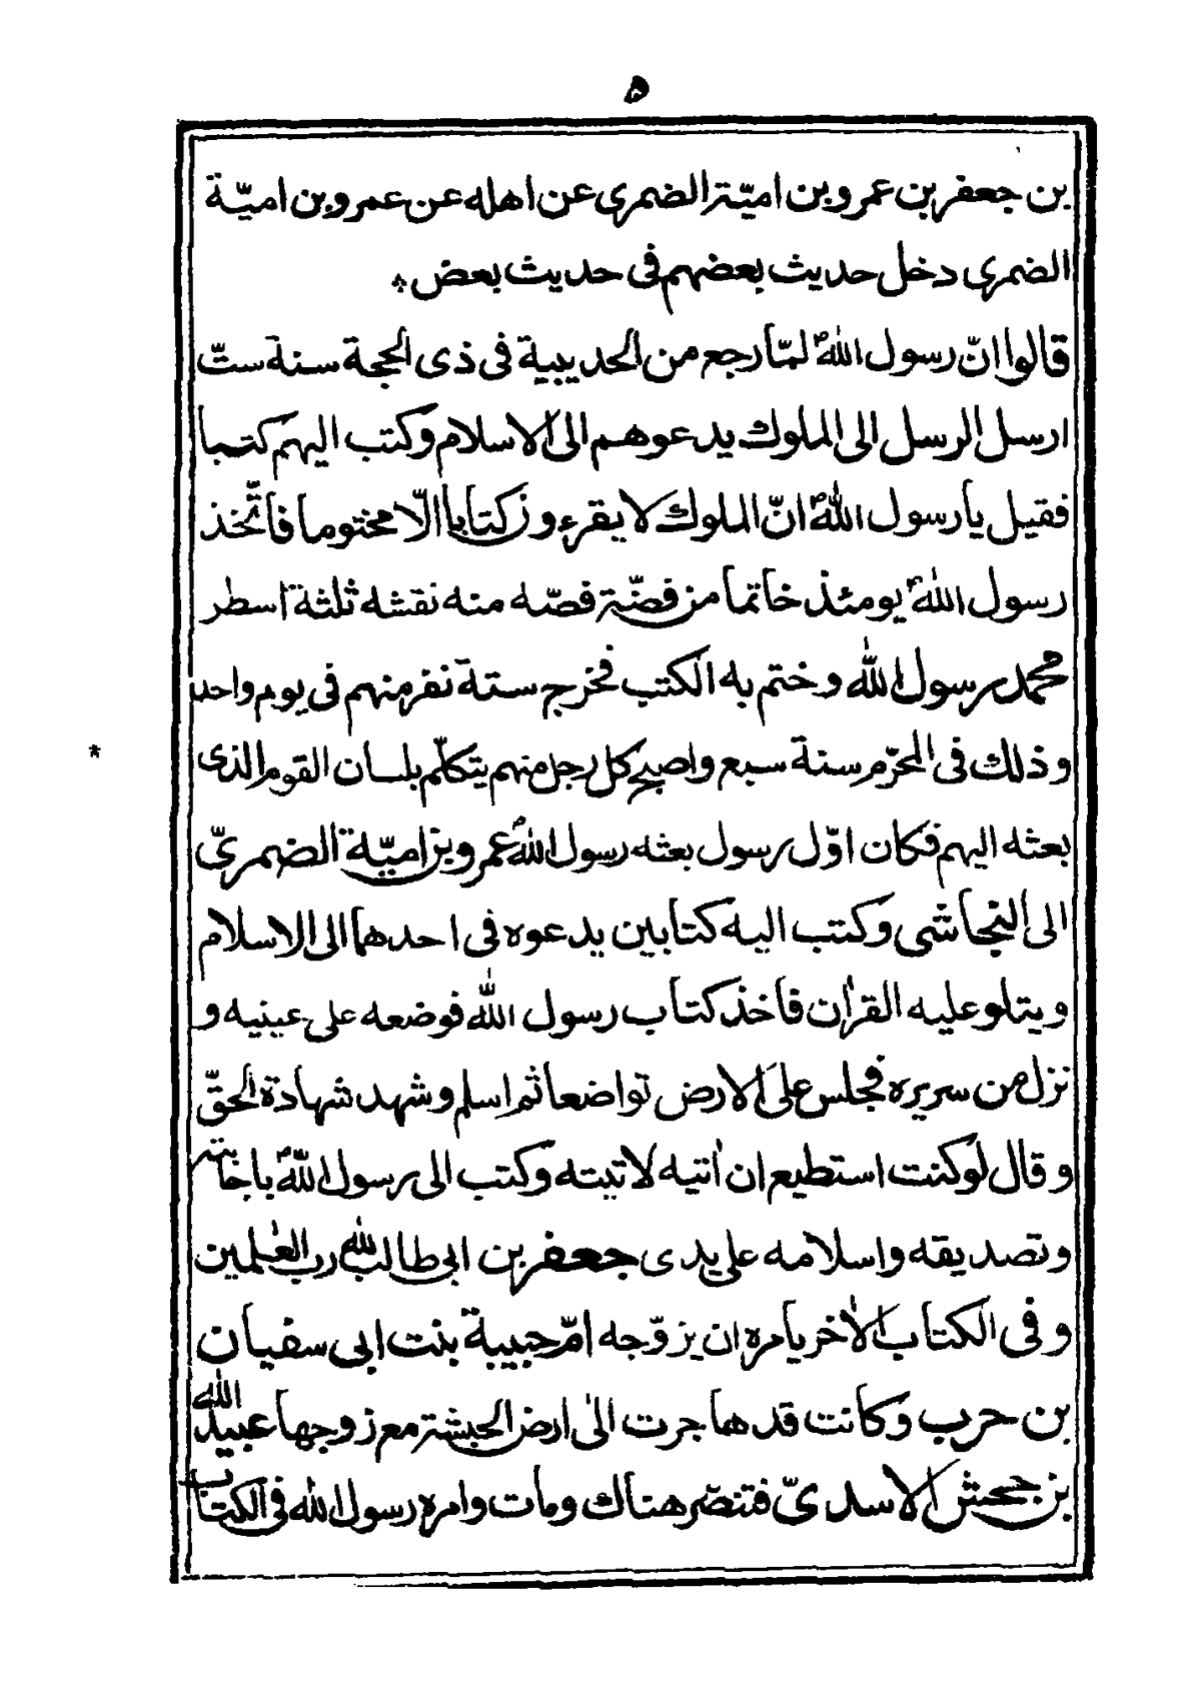 ۵
بن جعفر بن عمرو بن اميّة الضمرى عن اهله عن عمرو بن اميّة
الضمرى دخل حديث بعضهم فى حديث بعض
قالوا انّ رسول اللهؐ لمّا رجع من الحديبية فى ذى الحجة سنة ستّ
ارسل الرسل الى الملوك يدعوهم الى الاسلام وكتب اليهم كتبا
فقيل يا رسول اللهؐ انّ الملوك لا يقرءون كتابا الّا مختوما فاتّخذ
رسول اللهؐ يومئذ خاتما من فضّة فصّه منه نقشه ثلثة اسطر
محمد رسول الله وختم به الكتب فخرج ستة نفر منهم فى يوم واحد
* وذلك فى المحرّم سنة سبع واصبح كل رجل منهم يتكلّم بلسان القوم الذى
بعثه اليهم فكان اوّل رسول بعثه رسول اللهؐ عمرو بن اميّة الضمرىّ
الى النجاشى وكتب اليه كتابين يدعوه فى احدهما الى الاسلام
ويتلو عليه القراٰن فاخذ كتاب رسول الله فوضعه على عينيه و
نزل من سريره فجلس على الارض تواضعا ثم اسلم وشهد شهادة الحقّ
وقال لو كنت استطيع ان اٰتيه لاتيته وكتب الى رسول اللهؐ باجابته
وتصديقه واسلامه على يدى جعفر بن ابى طالب لله رب العٰلمين
وفى الكتاب الاٰخر يامره ان يزوّجه امّ حبيبة بنت ابى سفيان
بن حرب وكانت قد هاجرت الىٰ ارض الحبشة مع زوجها عبيد الله
بن جحش الاسدىّ فتنصّر هناك ومات وامره رسول الله فى الكتاب